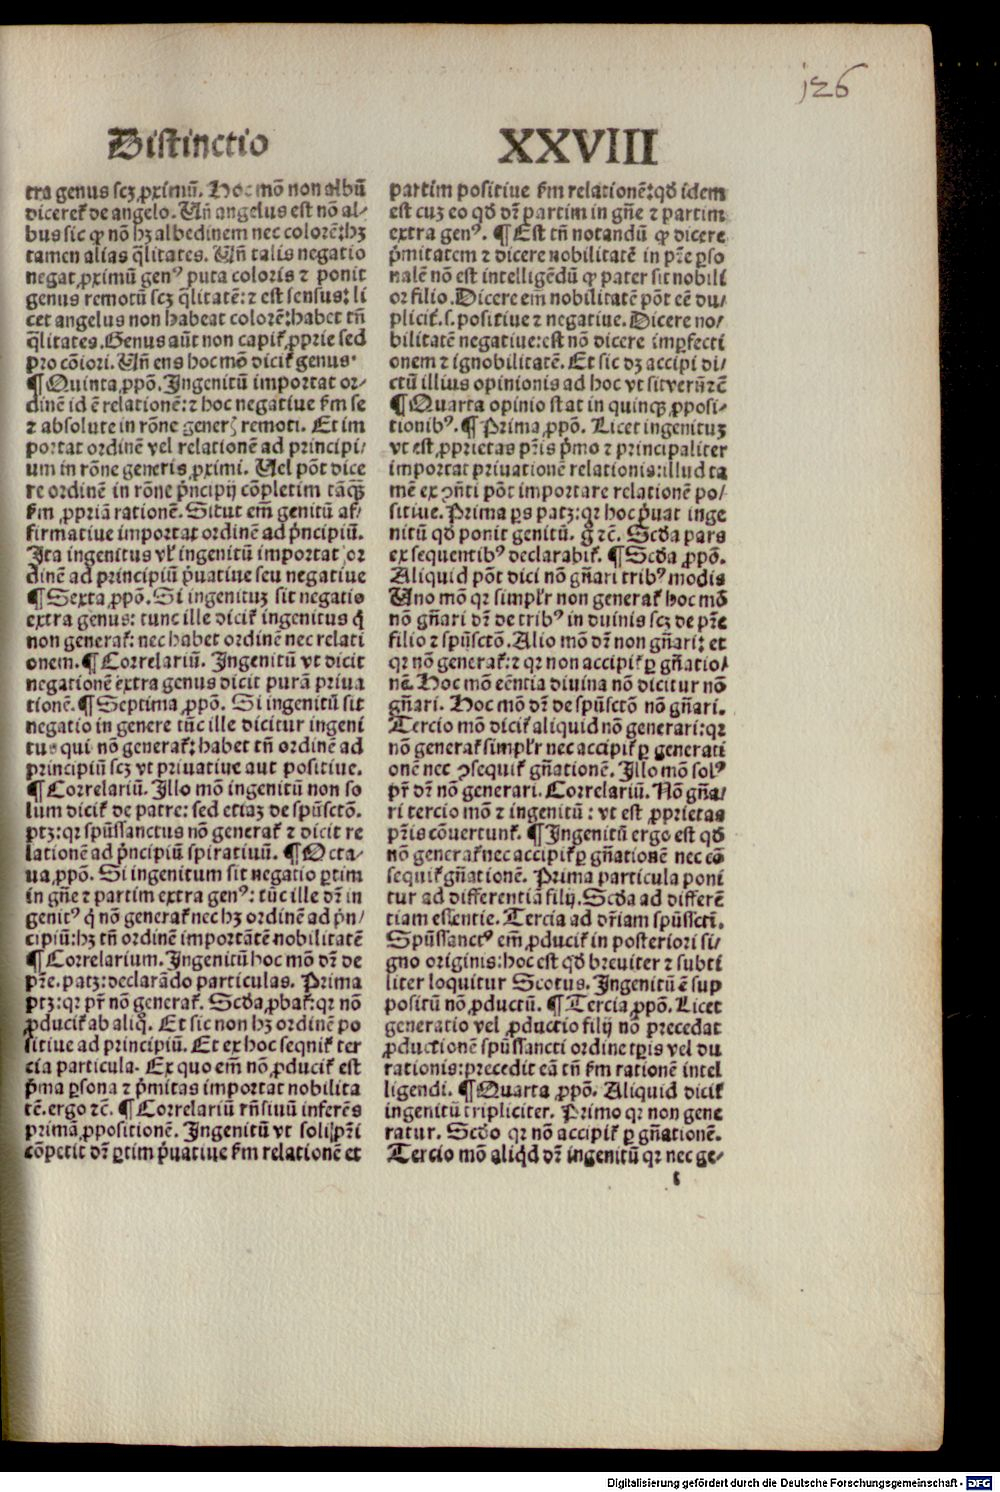 126
Distinctio XXVIII
tra genus scꝫ ꝓximū. Hoc mō non albū
diceret᷑ de angelo. Vn̄ angelus est nō al⸗
bus sic ꝙ nō hꝫ albedinem nec colorē: hꝫ
tamen alias q̄litates. Vn̄ talis negatio
negat ꝓximū genꝰ puta coloris ⁊ ponit
genus remotū scꝫ q̄litatē: ⁊ est sensus: li
cet angelus non habeat colorē: habet tn̄
q̄litates. Genus aūt non capit᷑ ꝓprie sed
pro cōiori. Vn̄ ens hoc mōo dicit᷑ genus.
¶ Quinta ꝓpō. Ingenitū importat or⸗
dinē id ē relationē: ⁊ hoc negatiue ẜm se
⁊ absolute in rōne generꝭ remoti. Et im
portat ordinē vel relationē ad principi⸗
um in rōne generis ꝓximi. Uel pōt dice
re ordinē in rōne pͥncipij cōpletim tāꝙ̄
ẜm ꝓpriā rationē. Sicut em̄ genitū af⸗
firmatiue importat ordinē ad pͥncipiū.
Ita ingenitus vl̓ ingenitū importat or
dinē ad principiū pͥuatiue seu negatiue
¶ Sexta ꝓpō. Si ingenituꝫ sit negatio
extra genus: tunc ille dicit᷑ ingenitus q̇
non generat᷑: nec habet ordinē nec relati
onem. ¶ Correlariū. Ingenitū vt dicit
negationē extra genus dicit purā priua
tionē. ¶ Septima ꝓpō. Si ingenitū sit
negatio in genere tūc ille dicitur ingeni
tus qui nō generat᷑: habet tn̄ ordinē ad
principiū scꝫ vt priuatiue aut positiue.
¶ Correlariū. Illo mōo ingenitū non so
lum dicit᷑ de patre: sed etiaꝫ de spūsctō.
ptꝫ: qꝛ spūssanctus nō generat᷑ ⁊ dicit re
lationē ad pͥncipiū spiratiuū. ¶ Octa⸗
ua ꝓpō. Si ingenitum sit negatio ꝑtim
in gn̄e ⁊ partim extra genꝰ: tūc ille dr̄ in
genitꝰ q̇ nō generat᷑ nec hꝫ ordinē ad pͥn⸗
cipiū: hꝫ tn̄ ordinē importātē nobilitatē
¶ Correlarium. Ingenitū hoc mō dr̄ de
pr̄e. patꝫ: declarādo particulas. Prima
ptꝫ: qꝛ pr̄ nō generat᷑. Scd̓a ꝓbat᷑: qꝛ nō
ꝓducit᷑ ab aliq̊. Et sic non hꝫ ordinē po
sitiue ad principiū. Et ex hoc seqnit᷑ ter
cia particula. Ex quo em̄ nō ꝓducit᷑ est
pͥma ꝑsona ⁊ pͥmitas importat nobilita
tē. ergo ⁊c̄. ¶ Correlariū rn̄siuū inferēs
primā ꝓpositionē. Ingenitū vt soli pr̄i
cōpetit dr̄ ꝑtim pͥuatiue ẜm relationē et
partim positiue ẜm relationē: qd̓ idem
est cuꝫ eo qd̓ dr̄ partim in gn̄e ⁊ partim
extra genꝰ. ¶ Est tn̄ notandū ꝙ dicere
pͥmitatem ⁊ dicere nobilitatē in pr̄e ꝑso
nalē nō est intelligēdū ꝙ pater sit nobili
or filio. Dicere em̄ nobilitatē pōt eē du⸗
plicit̓. s. positiue ⁊ negatiue. Dicere no⸗
bilitatē negatiue: est nō dicere imꝑfecti
onem ⁊ ignobilitatē. Et sic dꝫ accipi di⸗
ctū illius opinionis ad hoc vt sit verū ⁊c̄
¶ Quarta opinio stat in quinqꝫ ꝓposi⸗
tionibꝰ. ¶ Prima ꝓpō. Licet ingenituꝫ
vt est ꝓprietas pr̄is pͥmo ⁊ principaliter
importat priuationē relationis: illud ta
mē ex ꝯn̄ti pōt importare relationē po⸗
sitiue. Prima ꝑs patꝫ: qꝛ hoc pͥuat inge
nitū qd̓ ponit genitū. g̊ ⁊c̄. Scd̓a pars
ex sequentibꝰ declarabit᷑. ¶ Scd̓a ꝓpō.
Aliquid pōt dici nō gn̄ari tribꝰ modis
Uno mō qꝛ simpl̓r non generat᷑ hoc mō
nō gn̄ari dr̄ de tribꝰ in diuinis scꝫ de pr̄e
filio ⁊ spūsctō. Alio mō dr̄ non gn̄ari: et
qꝛ nō generat᷑: ⁊ qꝛ non accipit᷑ ꝑ gn̄atio⸗
nē. Hoc mō eēntia diuina nō dicitur nō
gn̄ari. Hoc mō dr̄ de spūsctō nō gn̄ari.
Tercio mō dicit᷑ aliquid nō generari: qꝛ
nō generat᷑ simpl̓r nec accipit᷑ ꝑ generati
onē nec ꝯsequit᷑ gn̄ationē. Illo mō solꝰ
pr̄ dr̄ nō generari. Correlariū. Nō gn̄a⸗
ri tercio mō ⁊ ingenitū: vt est ꝓprietas
pr̄is cōuertunt᷑. ¶ Ingenitū ergo est qd̓
nō generat᷑ nec accipit᷑ ꝑ gn̄ationē nec cō
sequit᷑ gn̄ationē. Prima particula poni
tur ad differentiā filij. Scd̓a ad differē
tiam essentie. Tercia ad dr̄iam spūsscti.
Spūssanctꝰ em̄ ꝓducit᷑ in posteriori si⸗
gno originis: hoc est qd̓ breuiter ⁊ subti
liter loquitur Scotus. Ingenitū ē sup
positū nō ꝓductū. ¶ Tercia ꝓpō. Licet
generatio vel ꝓductio filij nō precedat
ꝓductionē spūssancti ordine tꝑis vel du
rationis: precedit eā tn̄ ẜm rationē intel
ligendi. ¶ Quarta ꝓpō. Aliquid dicit᷑
ingenitū tripliciter. Primo qꝛ non gene
ratur. Scd̓o qꝛ nō accipit᷑ ꝑ gn̄ationē.
Tercio mō aliqd̓ dr̄ ingenitū qꝛ nec ge⸗
Digitalisierung gefördert durch die Deutsche Forschungsgemeinschaft - DFG